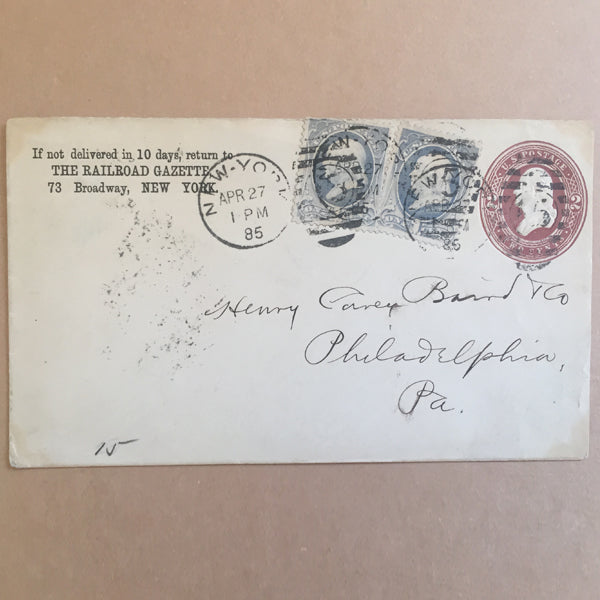 If not delivered in 10 days, return to
THE RAILROAD GAZETTE,
73 Broadway, NEW YORK.
NEW-YORK
APR 27
1 PM
85
U.S. POSTAGE
Henry Carey Baird & Co
Philadelphia,
Pa.
15